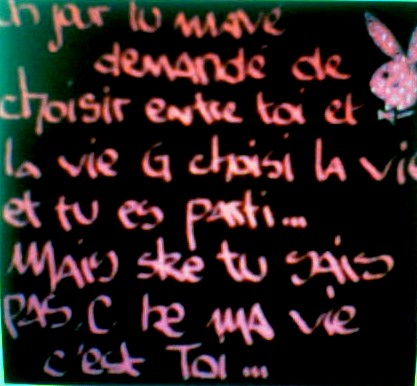 1 jour tu m'ave
demandé de
choisir entre toi et
la vie G choisi la vie
et tu es parti...
Mais ske tu sais
pas, C ke ma vie
c'est Toi...